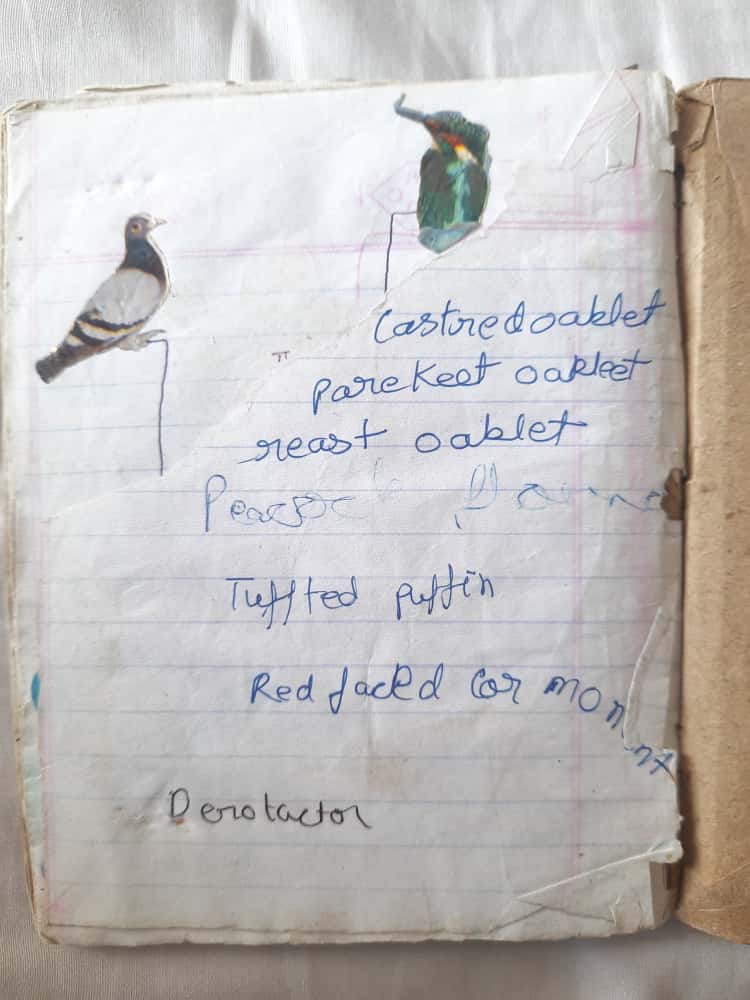 Castred oaklet
parekeet oakleet
reast oaklet
Peacock
Tuffted puffin
Red faced Cormonnt
Derotactor